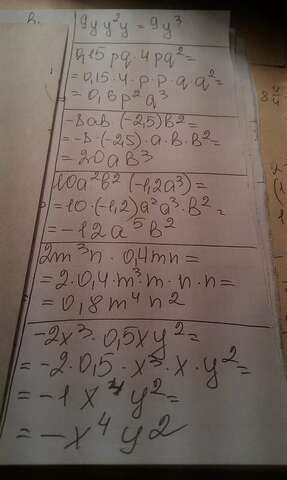 9yy²y = 9y³
0,15pq · 4pq² =
= 0,15 · 4 · p · p · q · q² =
= 0,6p²q³
-8ab · (-2,5)b² =
= -8 · (-2,5) · a · b · b² =
= 20ab³
10a²b² · (-1,2a³) =
= 10 · (-1,2)a²a³ · b² =
= -12a⁵b²
2m³n · 0,4mn =
= 2 · 0,4 · m³ · m · n · n =
= 0,8m⁴n2
-2x³ · 0,5xy² =
= -2 · 0,5 · x³ · x · y² =
= -1x⁴y² =
= -x⁴y2